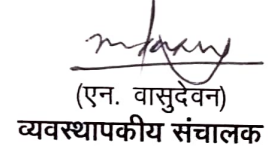 (एन. वासुदेवन)
व्यवस्थापकीय संचालक